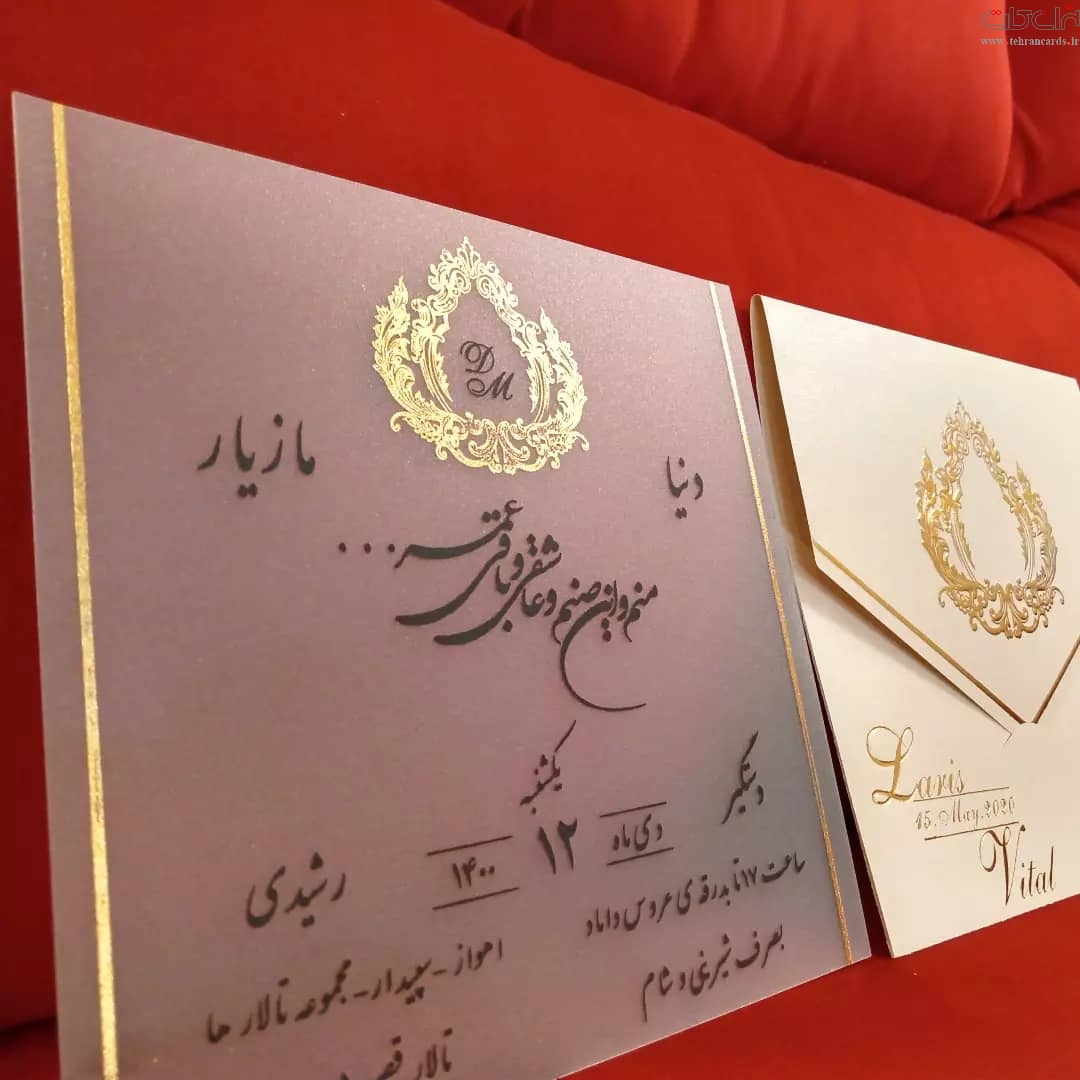 تهران کارت
www.tehrancards.ir
D
M
دنیا
مازیار
منم و این صنم و عاشقی و باقی عمر...
یکشنبه
دستگیر
دی ماه
۱۲
۱۴۰۰
رشیدی
ساعت ۱۷ تا بدرقه ی عروس و داماد
بصرف شیرینی و شام
اهواز - سپیدار - مجموعه تالار ها
تالار
Laris
15.May.2020
Vital